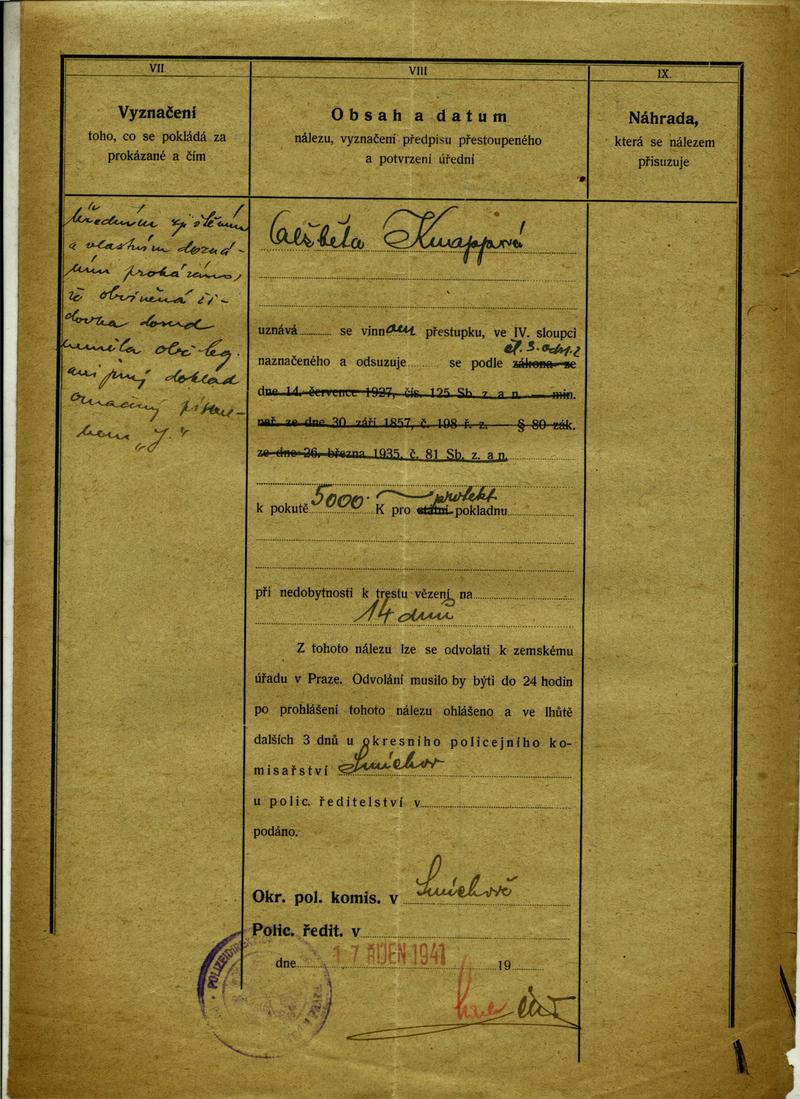 VII.
Vyznačení
toho, co se pokládá za
prokázané a čím
VIII
Obsah a datum
nálezu, vyznačení předpisu přestoupeného
a potvrzení úřední
IX.
Náhrada,
která se nálezem
přisuzuje
Úředním zjištěním
a vlastním doznáním
prokázáno,
že obviněná ži-
dovka
obč. leg.
ani jiný doklad
označený písme-
nem "J."
Alžběta Knappová
uznává se vinnou přestupku, ve IV. sloupci
čl. 3. odst. 2
naznačeného a odsuzuje se podle zákona ze
dne 14. července 1927, čís. 125 Sb. z. a n. — min.
nař. ze dne 30. září 1857, č. 198 ř. z. — § 80 zák.
ze dne 26. března 1935, č. 81 Sb. z. a n.
protekt.
k pokutě 5000.- K pro státní pokladnu
při nedobytnosti k trestu vězení na
14 dnů
Z tohoto nálezu lze se odvolati k zemskému
úřadu v Praze. Odvolání musilo by býti do 24 hodin
po prohlášení tohoto nálezu ohlášeno a ve lhůtě
dalších 3 dnů u okresního policejního ko-
misařství Smíchov
u polic. ředitelství v
podáno.
Okr. pol. komis. v Smíchově
Polic. ředit. v
dne 17 ŘÍJEN 1941 19
POLIZEIDIREKTION